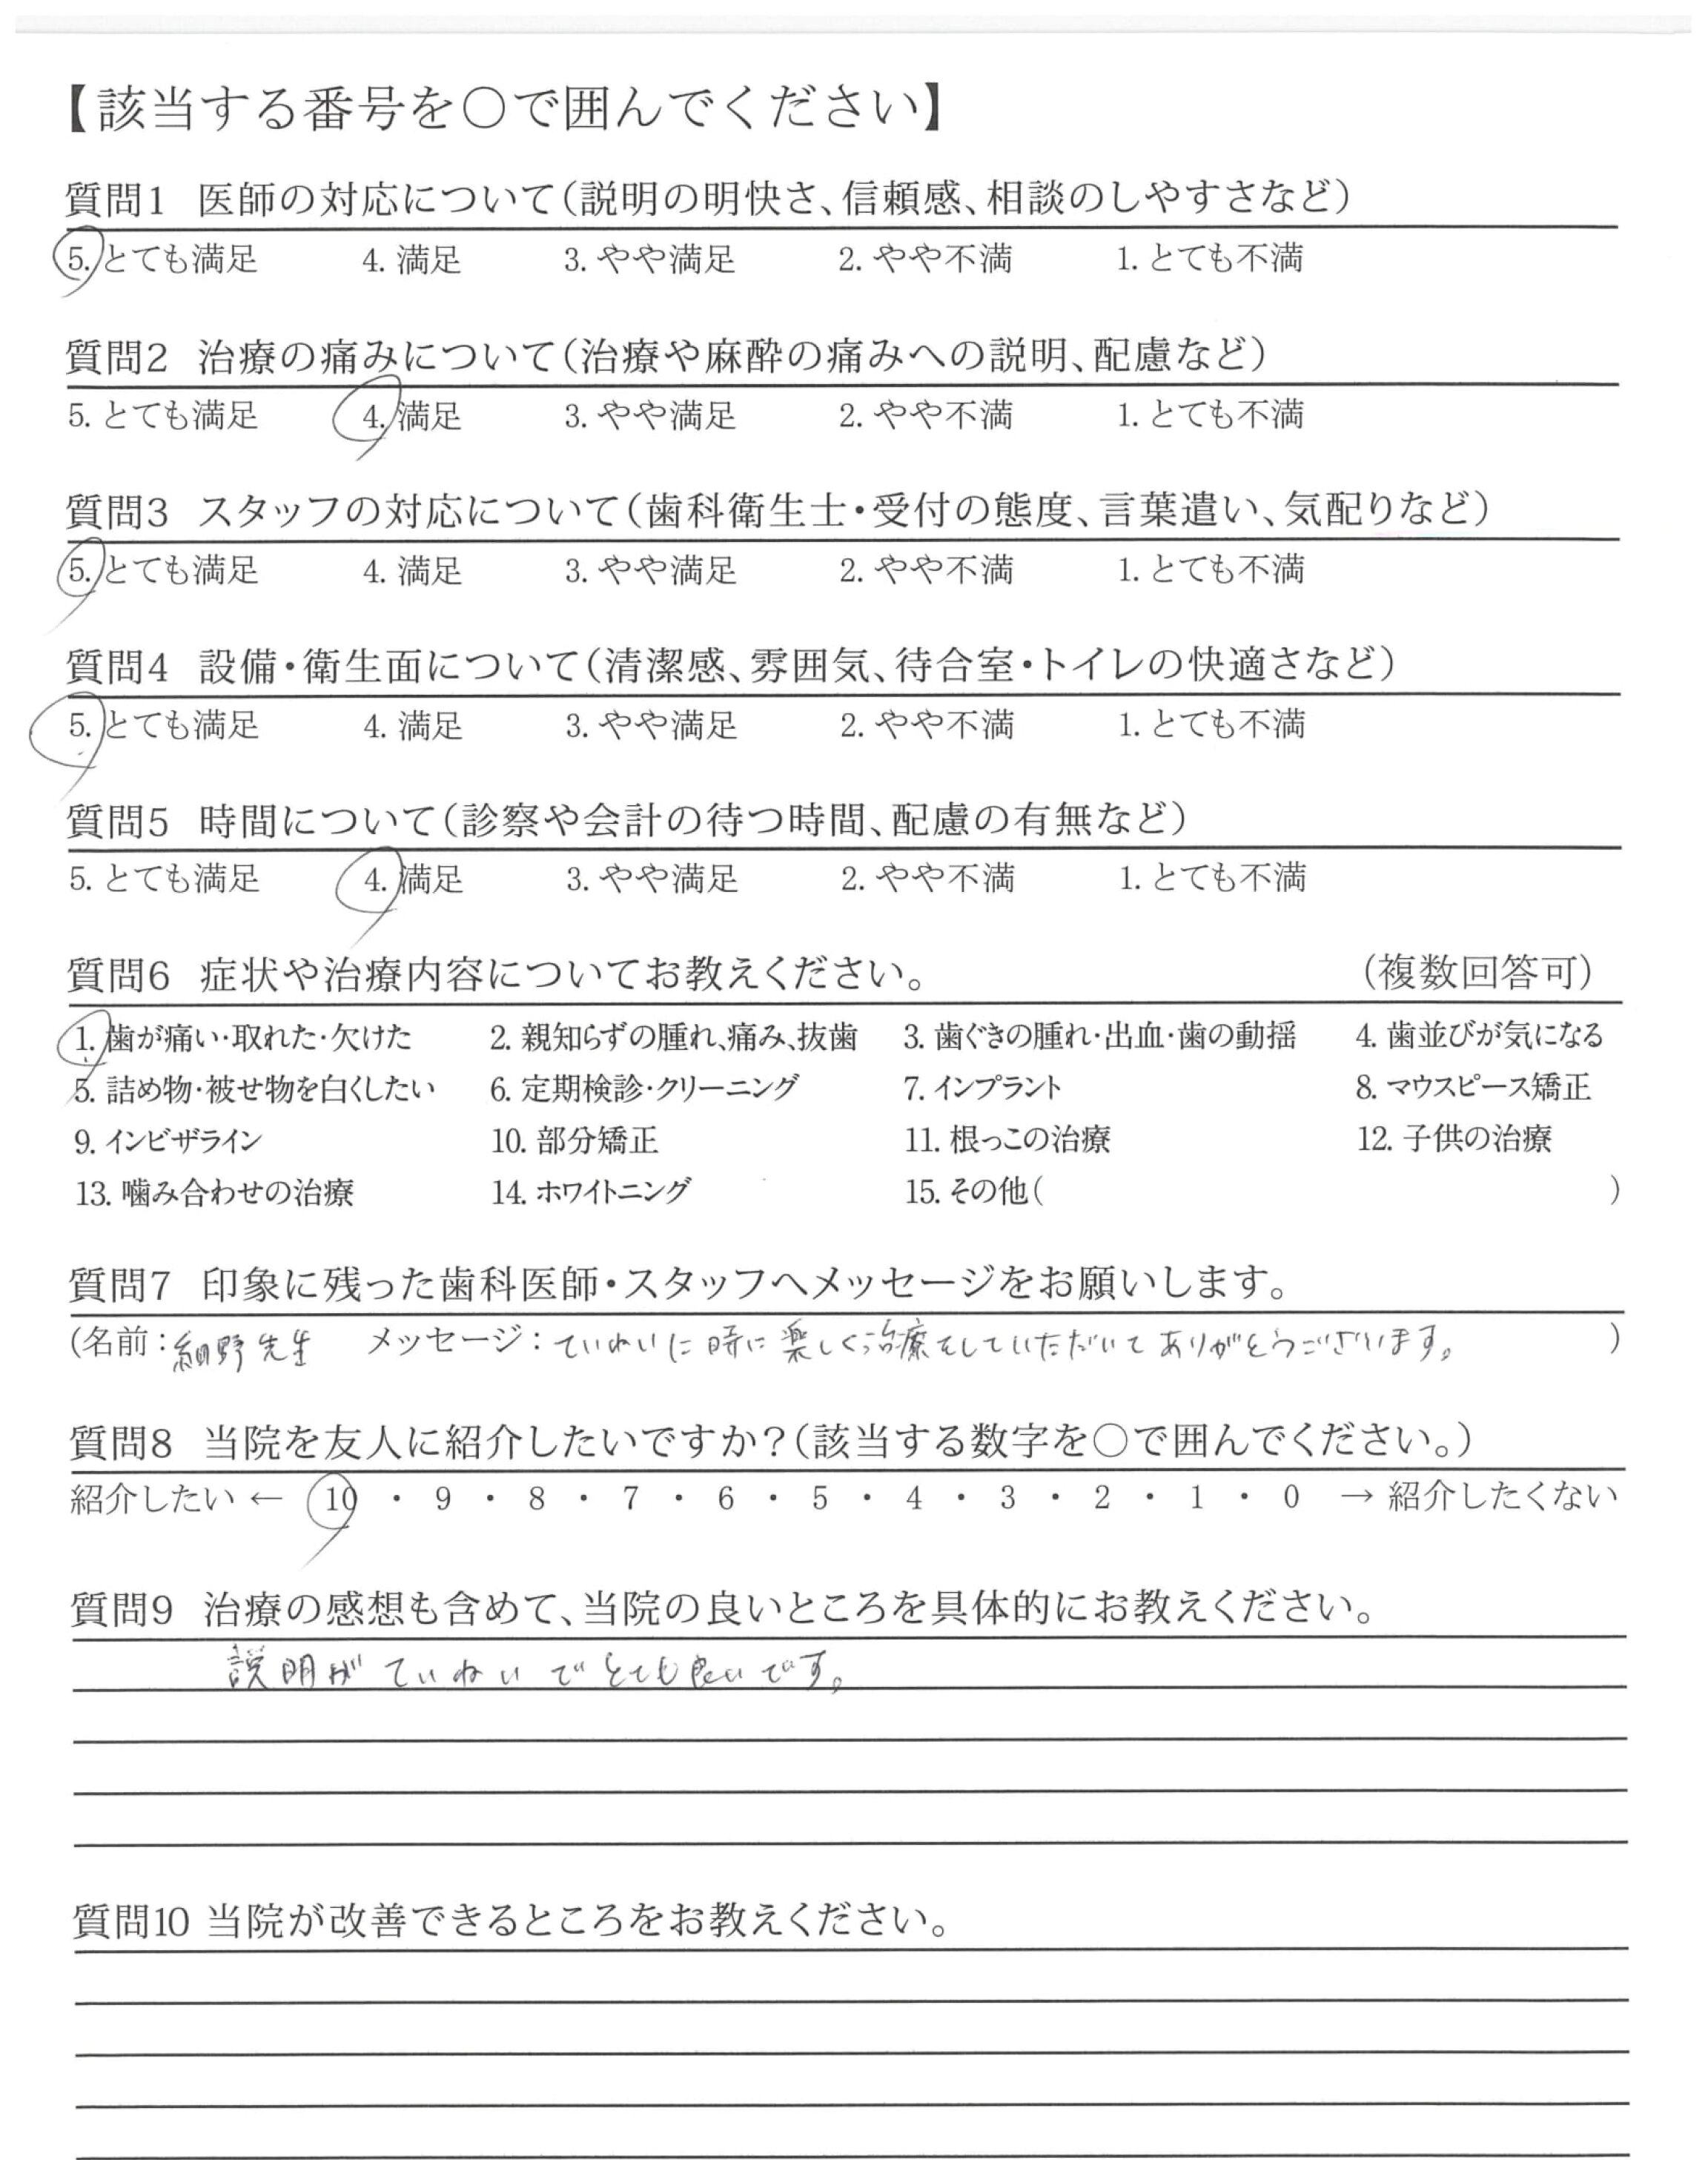 【該当する番号を○で囲んでください】
質問1 医師の対応について(説明の明快さ、信頼感、相談のしやすさなど)
5. とても満足 4. 満足 3. やや満足 2. やや不満 1. とても不満
質問2 治療の痛みについて(治療や麻酔の痛みへの説明、配慮など)
5. とても満足 4. 満足 3. やや満足 2. やや不満 1. とても不満
質問3 スタッフの対応について(歯科衛生士・受付の態度、言葉遣い、気配りなど)
5. とても満足 4. 満足 3. やや満足 2. やや不満 1. とても不満
質問4 設備・衛生面について(清潔感、雰囲気、待合室・トイレの快適さなど)
5. とても満足 4. 満足 3. やや満足 2. やや不満 1. とても不満
質問5 時間について(診察や会計の待つ時間、配慮の有無など)
5. とても満足 4. 満足 3. やや満足 2. やや不満 1. とても不満
質問6 症状や治療内容についてお教えください。 (複数回答可)
1. 歯が痛い・取れた・欠けた 2. 親知らずの腫れ、痛み、抜歯 3. 歯ぐきの腫れ・出血・歯の動揺 4. 歯並びが気になる
5. 詰め物・被せ物を白くしたい 6. 定期検診・クリーニング 7. インプラント 8. マウスピース矯正
9. インビザライン 10. 部分矯正 11. 根っこの治療 12. 子供の治療
13. 噛み合わせの治療 14. ホワイトニング 15. その他( )
質問7 印象に残った歯科医師・スタッフへメッセージをお願いします。
(名前：細野先生 メッセージ：ていねいに時に楽しく治療をしていただいてありがとうございます。 )
質問8 当院を友人に紹介したいですか?(該当する数字を○で囲んでください。)
紹介したい ← 10 ・ 9 ・ 8 ・ 7 ・ 6 ・ 5 ・ 4 ・ 3 ・ 2 ・ 1 ・ 0 → 紹介したくない
質問9 治療の感想も含めて、当院の良いところを具体的にお教えください。
説明がていねいでとても良いです。
質問10 当院が改善できるところをお教えください。